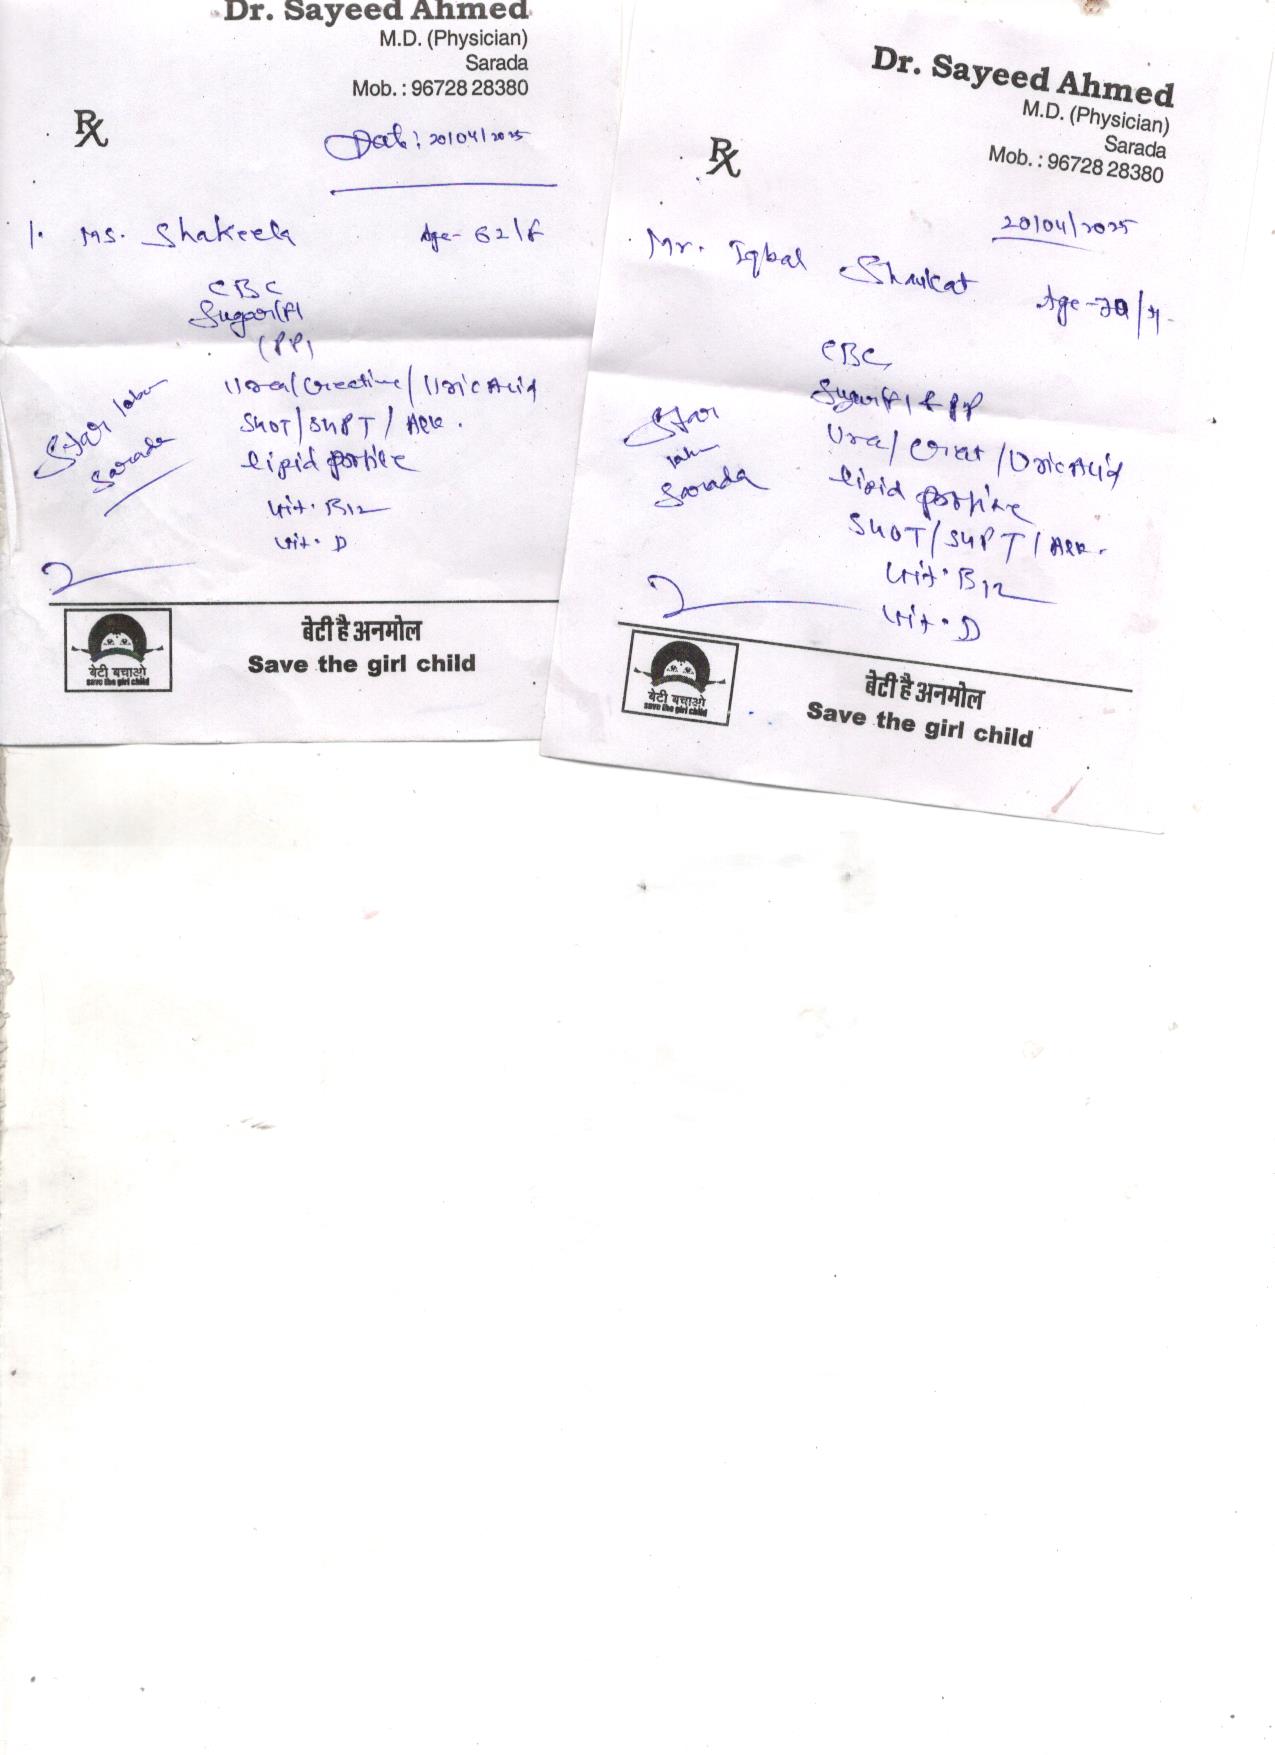 Dr. Sayeed Ahmed
M.D. (Physician)
Sarada
Mob. : 96728 28380
Rx
Date: 20/04/2025
1. Ms. Shakeela Age- 62/F
CBC
Sugar (F)
(PP)
Urea/Creatine/Uric Acid
SGOT/SGPT/Alk.
lipid porfile
Vit. B12
Vit. D
Star labs
Sarada
बेटी है अनमोल
Save the girl child
बेटी बचाओ
save the girl child
Dr. Sayeed Ahmed
M.D. (Physician)
Sarada
Mob. : 96728 28380
Rx
20/04/2025
Mr. Iqbal Shaukat Age-70/M.
CBC
Sugar (F) & PP
Urea/Creat/Uric Acid
lipid porfile
SGOT/SGPT/Alk.
Vit. B12
Vit. D
Star
labs
Sarada
बेटी है अनमोल
Save the girl child
बेटी बचाओ
save the girl child